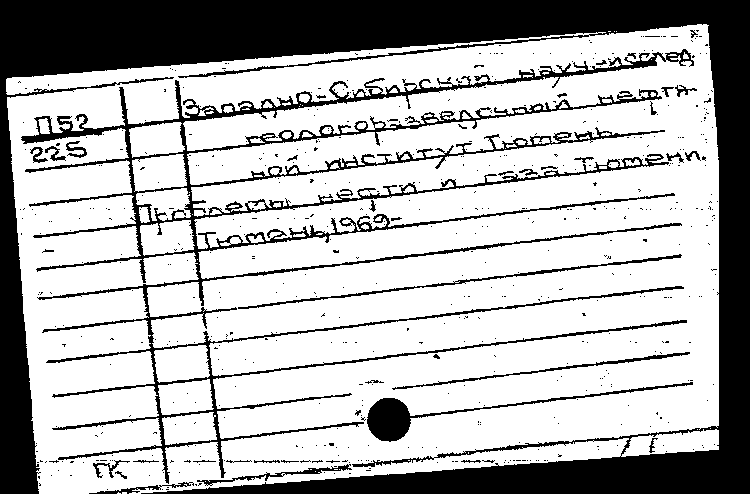 Западно-Сибирский науч.-исслед.
П52
геологоразведочный нефтя-
225
ной институт. Тюмень.
Проблемы нефти и газа Тюмени.
Тюмень, 1969-
ГК